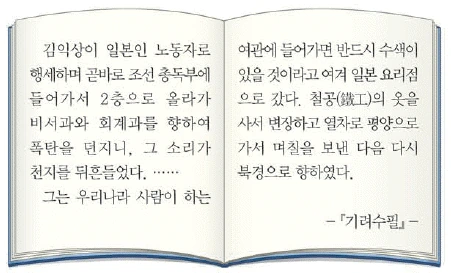 김익상이 일본인 노동자로
행세하며 곧바로 조선 총독부에
들어가서 2층으로 올라가
비서과와 회계과를 향하여
폭탄을 던지니, 그 소리가
천지를 뒤흔들었다. ……
그는 우리나라 사람이 하는
여관에 들어가면 반드시 수색이
있을 것이라고 여겨 일본 요리점
으로 갔다. 철공(鐵工)의 옷을
사서 변장하고 열차로 평양으로
가서 며칠을 보낸 다음 다시
북경으로 향하였다.
-『기려수필』-